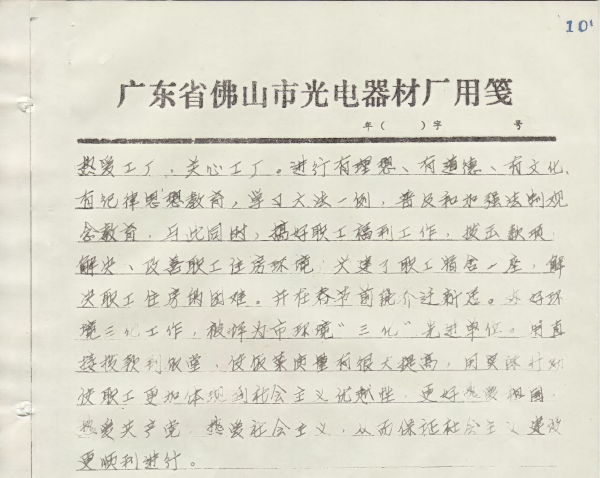 101
广东省佛山市光电器材厂用笺
年（ ）字 号
热爱工厂，关心工厂。进行有理想、有道德、有文化、
有纪律思想教育，学习大法一例，普及和加强法制观
念教育，与此同时，搞好职工福利工作，拨出款项
解决、改善职工住房环境，共建了职工宿舍一座，解
决职工住房的困难。并在春节前统介迁新
好环
境三化工作，被评为市环境“三化”先进单位。用直
接拨款到饭堂，使饭菜质量有很大提高，用实际行动
使职工更加体现到社会主义优越性，更好热爱祖国，
热爱共产党，热爱社会主义，从而保证社会主义建设
更顺利进行。